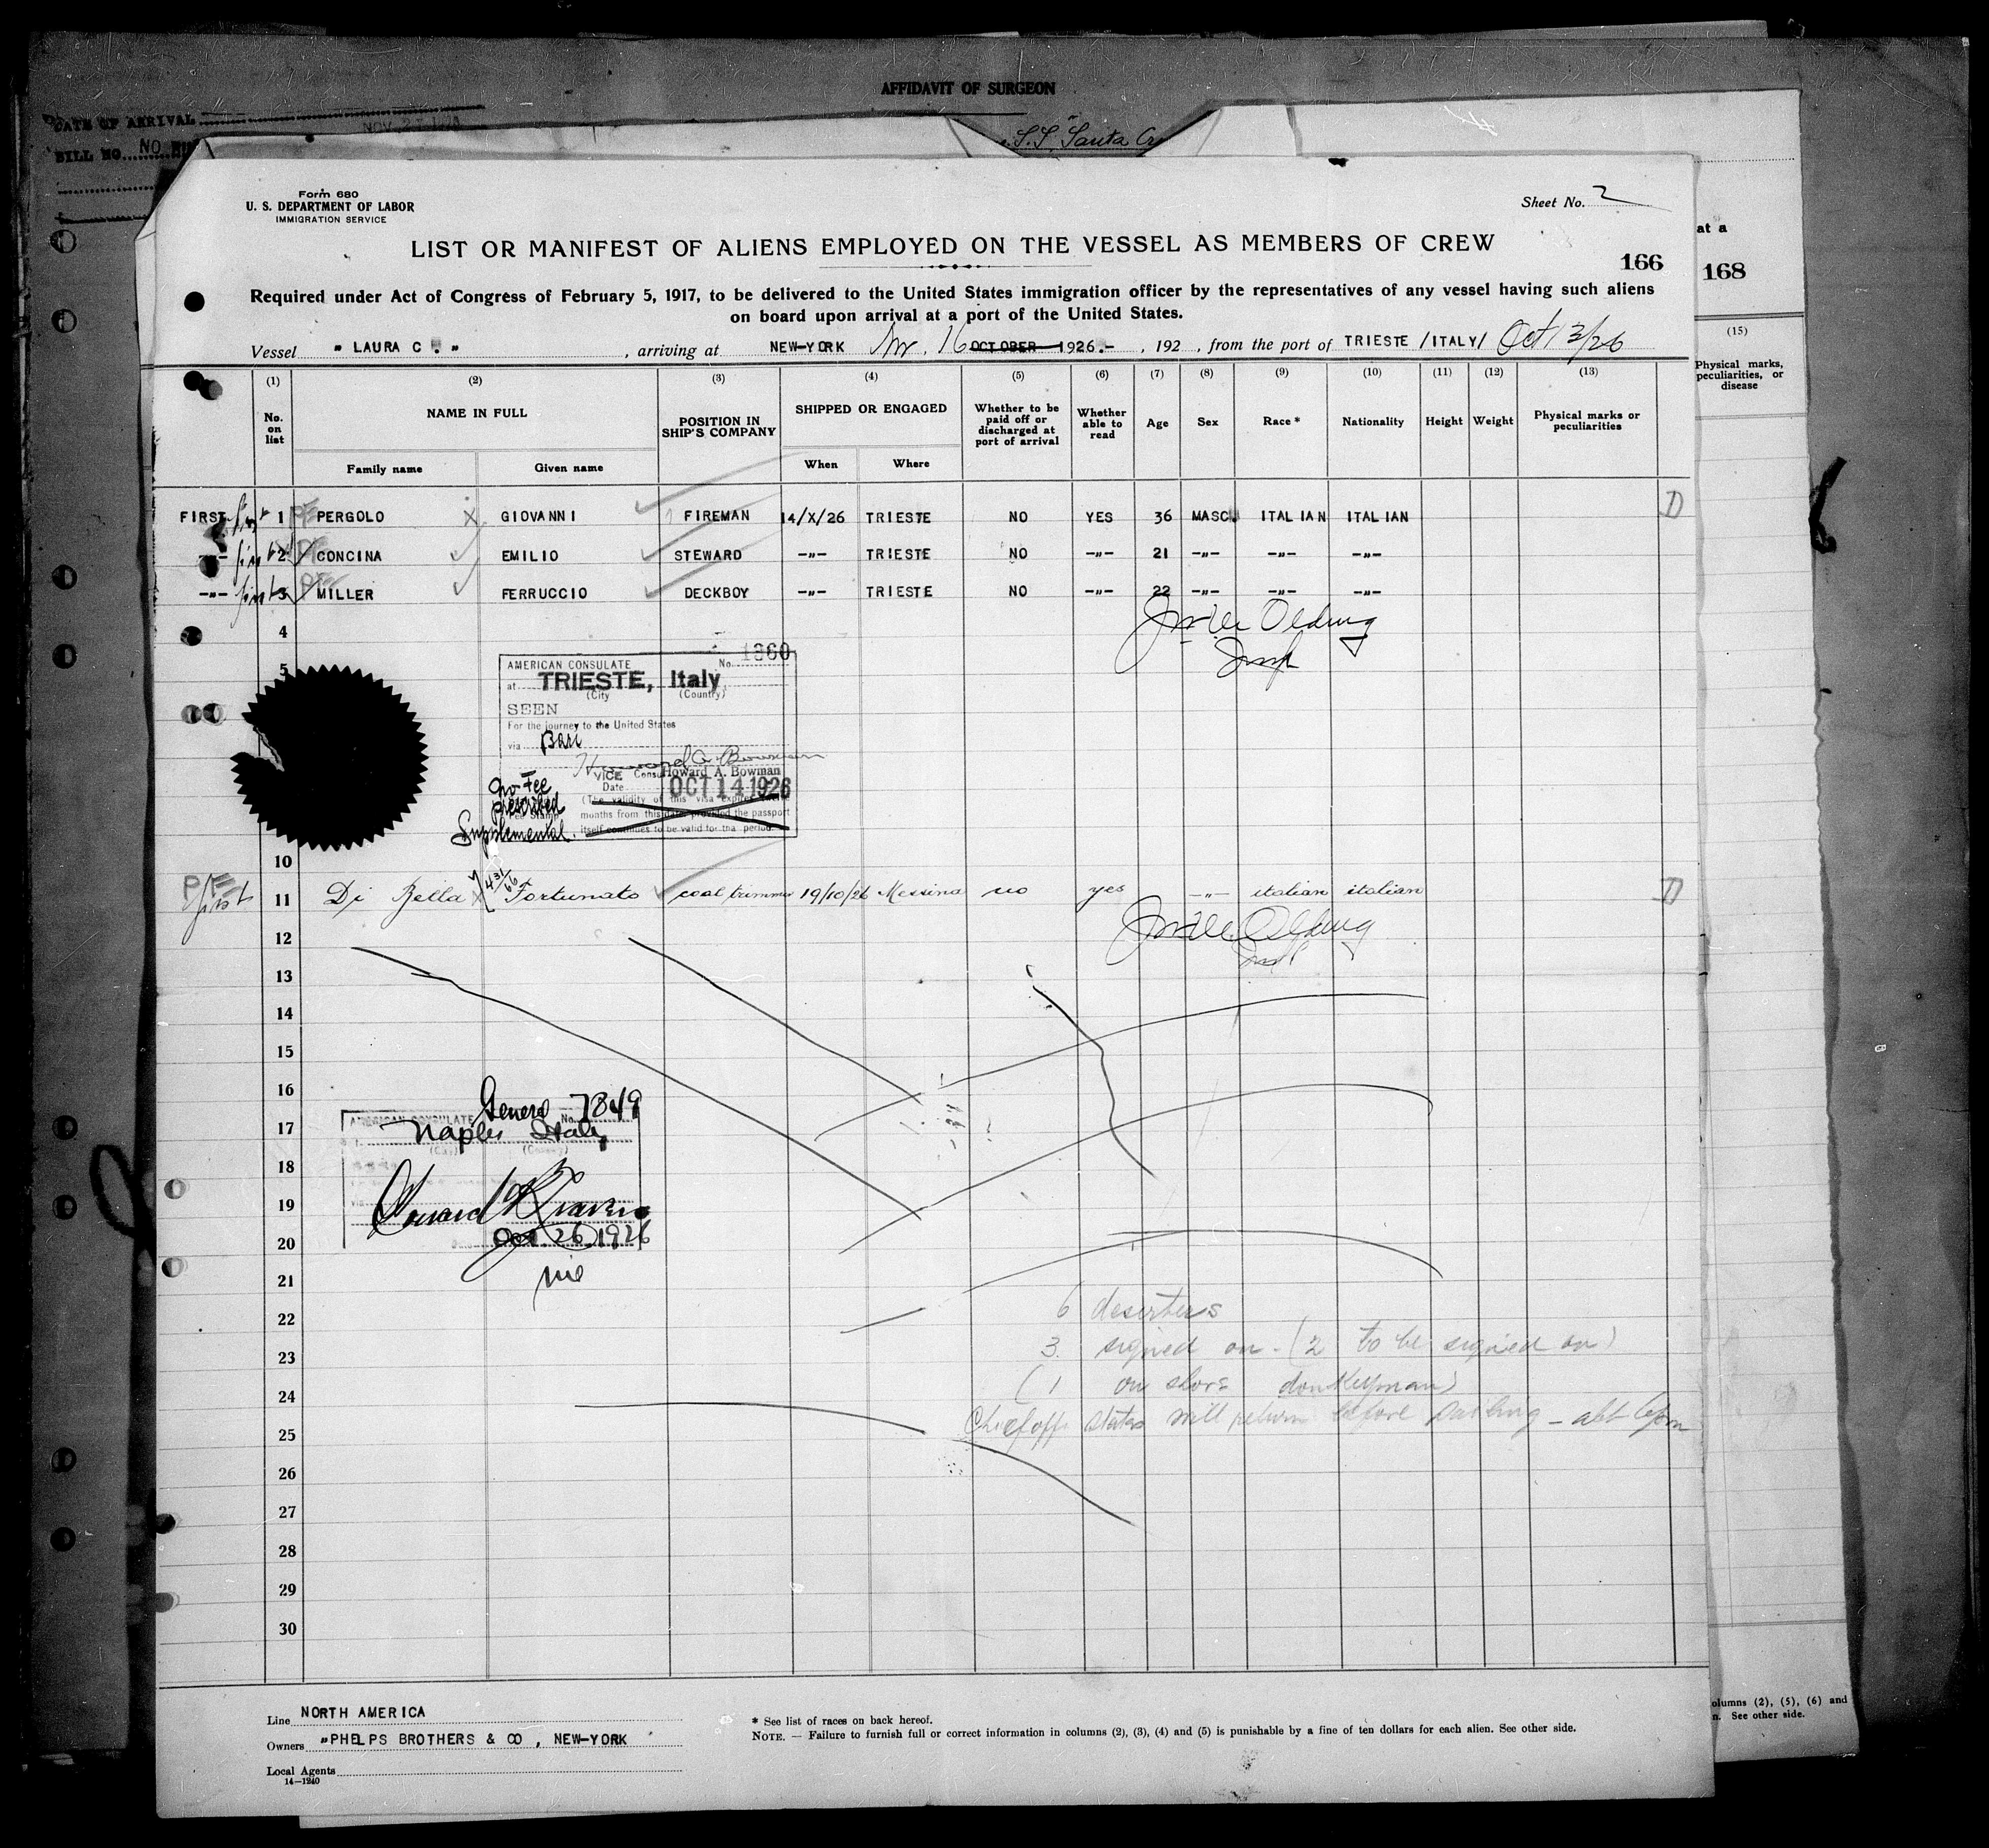 AFFIDAVIT OF SURGEON
DATE OF ARRIVAL
BILL NO. NO
S.S. "Santa
Form 680
U. S. DEPARTMENT OF LABOR
IMMIGRATION SERVICE
Sheet No. 2
LIST OR MANIFEST OF ALIENS EMPLOYED ON THE VESSEL AS MEMBERS OF CREW
166
at a
168
Required under Act of Congress of February 5, 1917, to be delivered to the United States immigration officer by the representatives of any vessel having such aliens
on board upon arrival at a port of the United States.
Vessel " LAURA C. " , arriving at NEW-YORK Nov. 16 OCTOBER 1926.- , 192 , from the port of TRIESTE /ITALY/ Oct 13/26
(1) (2) (3) (4) (5) (6) (7) (8) (9) (10) (11) (12) (13)
(15)
Physical marks, peculiarities, or disease
No. on list
NAME IN FULL
Family name
Given name
POSITION IN SHIP'S COMPANY
SHIPPED OR ENGAGED
When
Where
Whether to be paid off or discharged at port of arrival
Whether able to read
Age
Sex
Race *
Nationality
Height
Weight
Physical marks or peculiarities
FIRST first 1 PERGOLO X GIOVANNI FIREMAN 14/X/26 TRIESTE NO YES 36 MASC. ITALIAN ITALIAN D
-"- first 2 CONCINA EMILIO STEWARD -"- TRIESTE NO -"- 21 -"- -"- -"-
-"- first 3 MILLER FERRUCCIO DECKBOY -"- TRIESTE NO -"- 22 -"- -"- -"-
4
Insp
5
AMERICAN CONSULATE No. 1360
at TRIESTE, Italy
(City (Country)
SEEN
For the journey to the United States
via Bari
Howard A. Bowman
VICE Consul Howard A. Bowman
Date OCT 14 1926
(The validity of this visa expires
months from this date provided the passport
itself continues to be valid for the period.
No Fee
prescribed
Fee Stamp
Supplemental.
10
PE first 11 Di Bella X Fortunato coal trimmer 19/10/26 Messina no yes -"- italian italian D
12
Insp
13
14
15
16
Genero No. 7849
AMERICAN CONSULATE
17
Naples Italy
(City) (Country)
18
19
20
Oct. 26, 1926
21
22 6 deserters
23 3 signed on - (2 to be signed on)
24 (1 on shore donkeyman)
25 Chief off. states will return before sailing - abt 6pm
26
27
28
29
30
Line NORTH AMERICA
Owners "PHELPS BROTHERS & CO , NEW-YORK
Local Agents
14-1240
* See list of races on back hereof.
NOTE. — Failure to furnish full or correct information in columns (2), (3), (4) and (5) is punishable by a fine of ten dollars for each alien. See other side.
olumns (2), (5), (6) and
n. See other side.